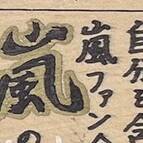 自分を含
嵐ファンへ
嵐の